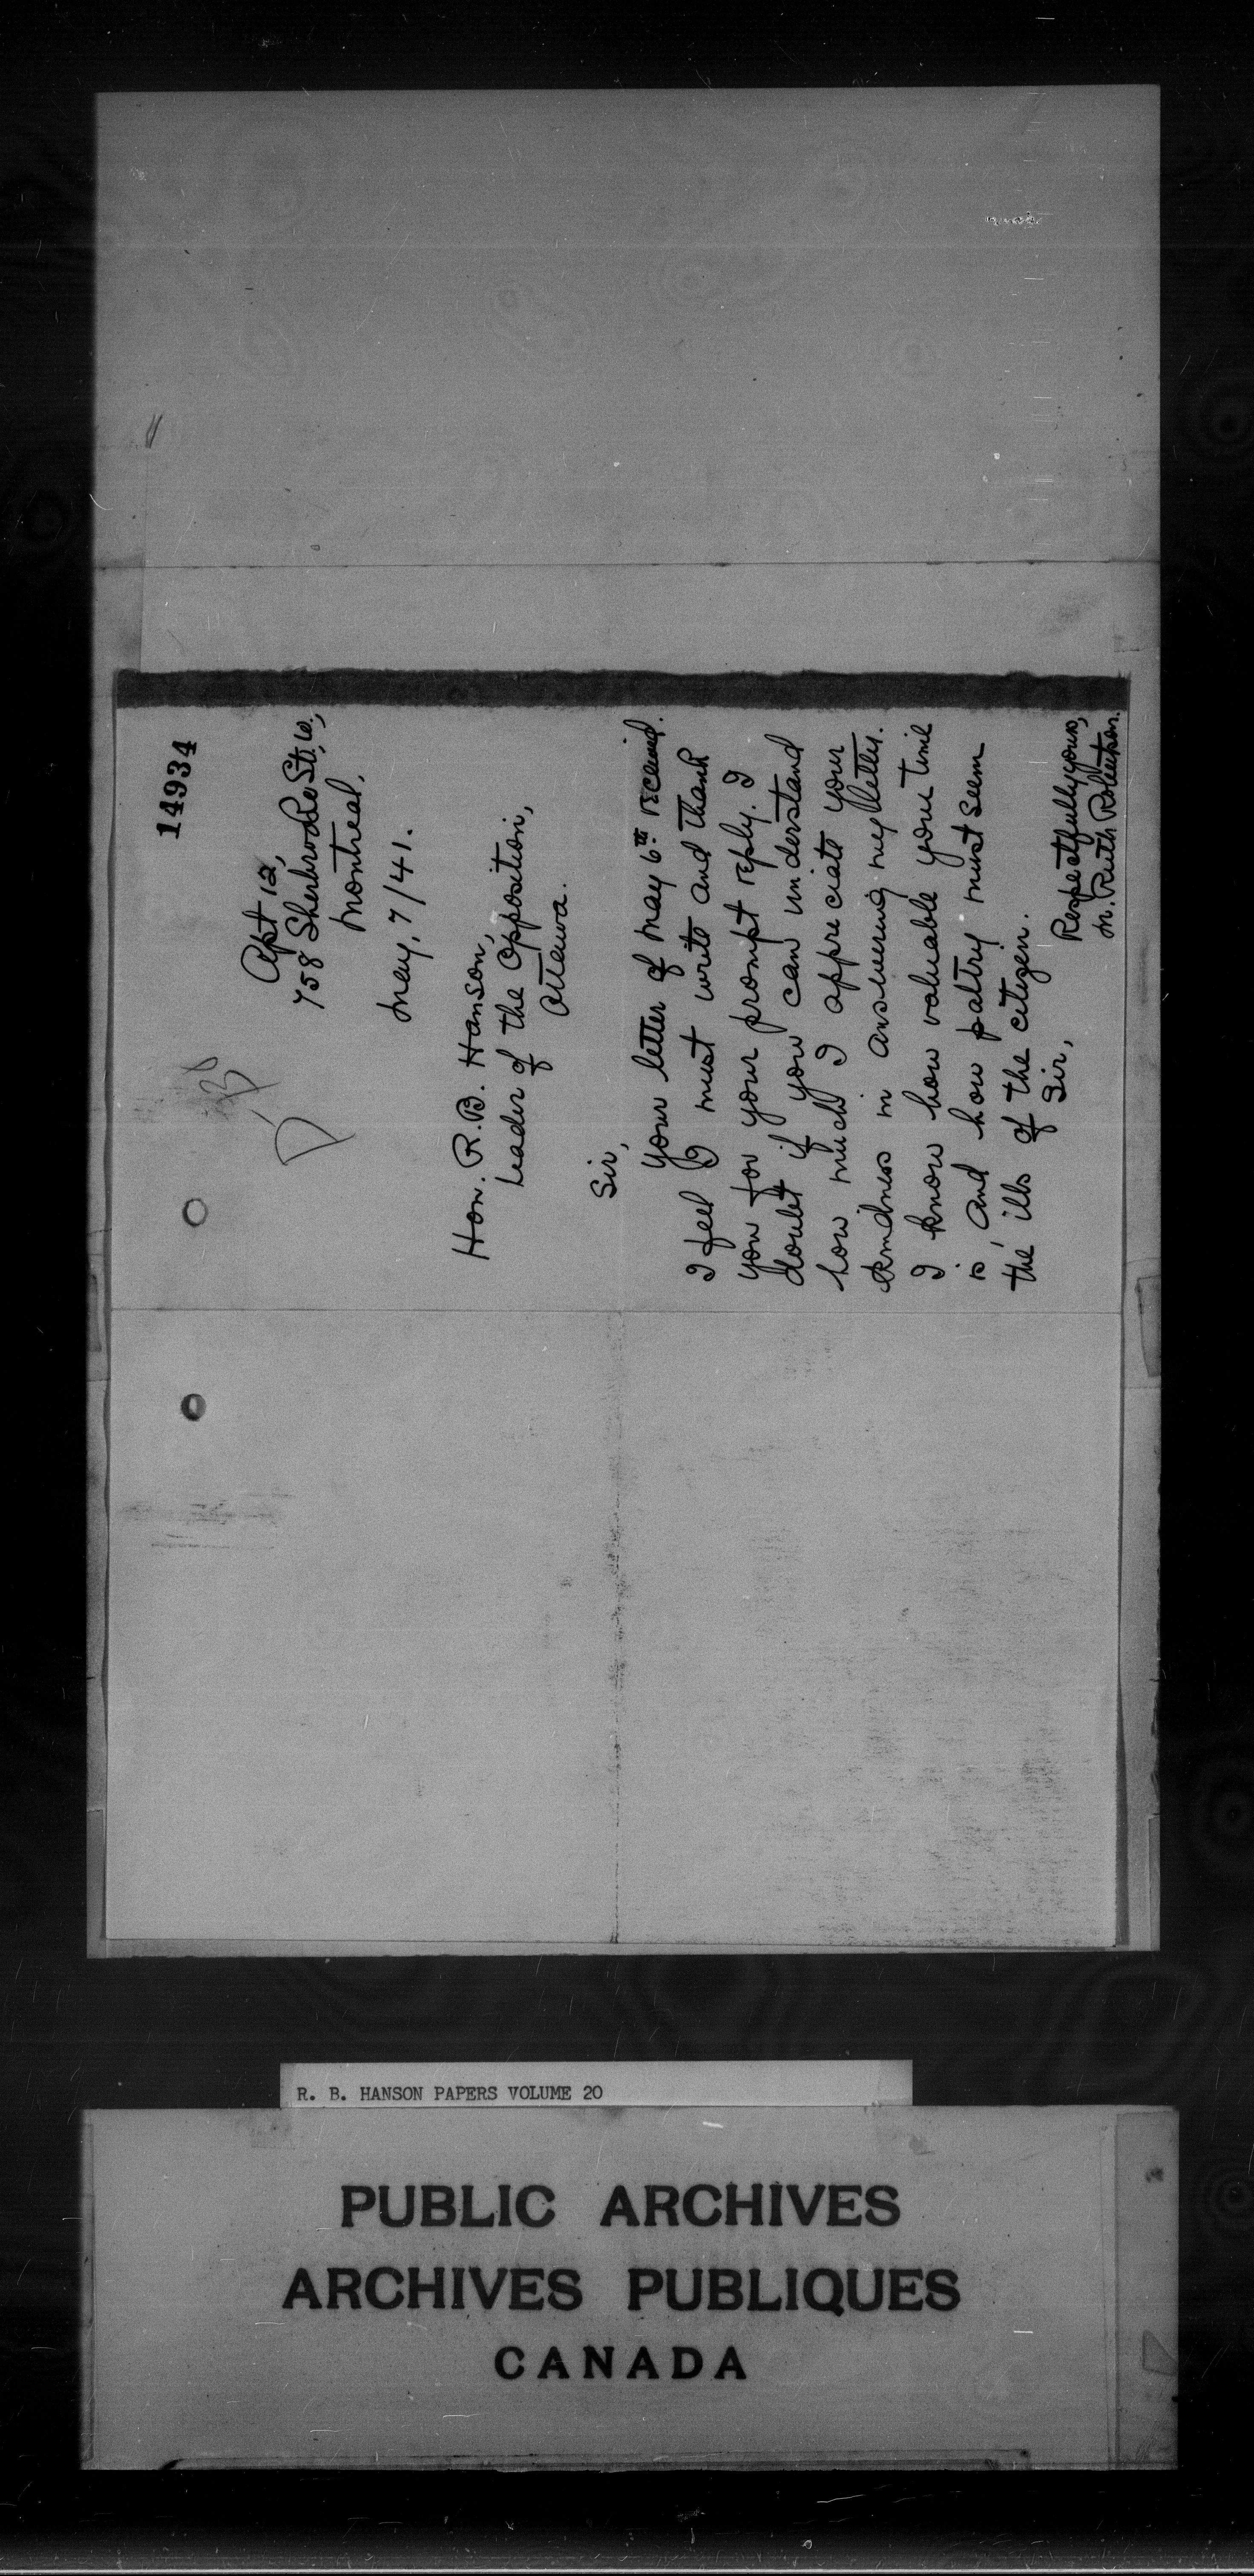 14934
Apt 12,
758 Sherbrooke St., W.,
Montreal,
May, 7/41.
D-38
Hon. R. B. Hanson,
Leader of the Opposition,
Ottawa.
Sir,
Your letter of May 6th received.
I feel I must write and thank
you for your prompt reply. I
doubt if you can understand
how much I appreciate your
kindness in answering my letter.
I know how valuable your time
is, and how paltry must seem
the ills of the citizen.
Sir,
Respectfully yours,
M. Ruth Robertson.
R. B. HANSON PAPERS VOLUME 20
PUBLIC ARCHIVES
ARCHIVES PUBLIQUES
CANADA